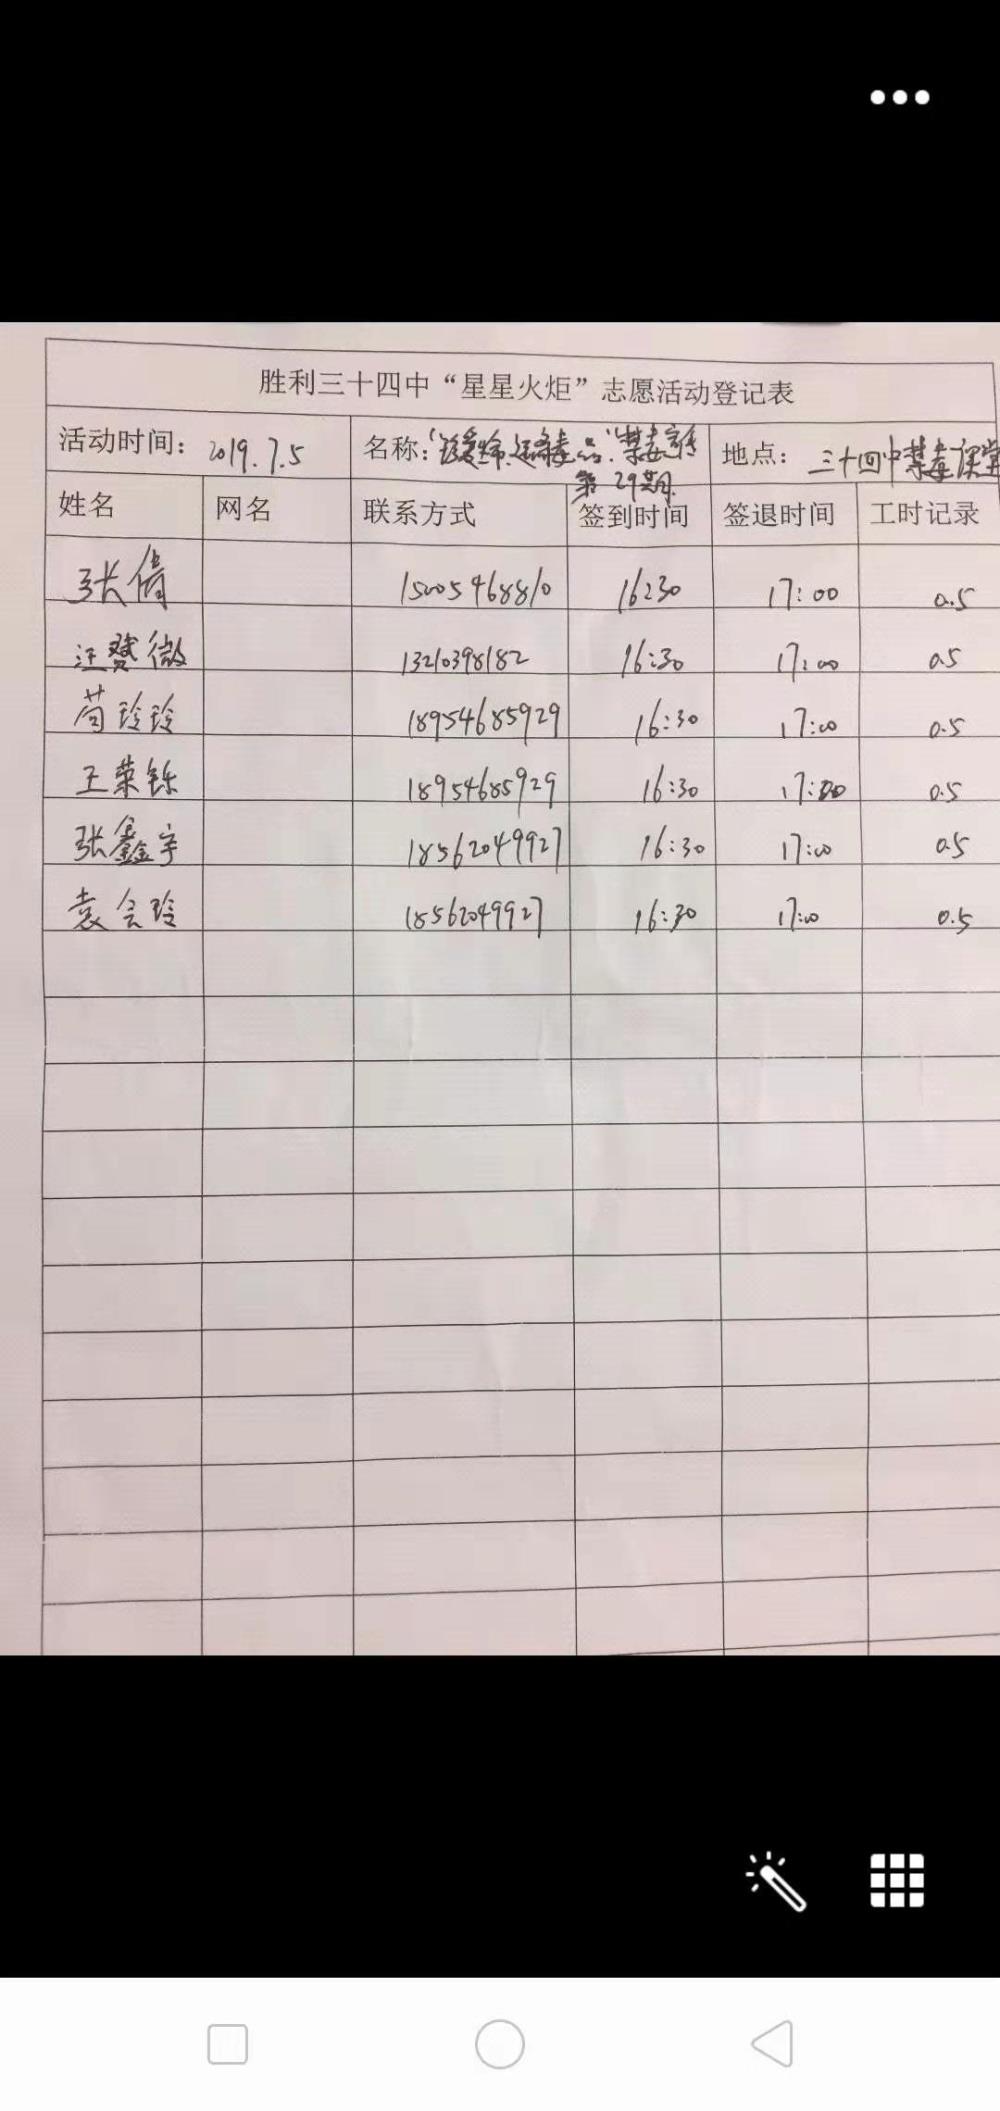 胜利三十四中“星星火炬”志愿活动登记表
活动时间：2019.7.5 名称：“珍爱生命.远离毒品.”禁毒宣传 地点：三十四中禁毒课堂
第29期.
姓名 网名 联系方式 签到时间 签退时间 工时记录
张倩 15005468810 16:30 17:00 0.5
汪赟微 13210398182 16:30 17:00 0.5
苟玲玲 18954685929 16:30 17:00 0.5
王荣铄 18954685929 16:30 17:00 0.5
张鑫宇 18562049927 16:30 17:00 0.5
袁会玲 18562049927 16:30 17:00 0.5